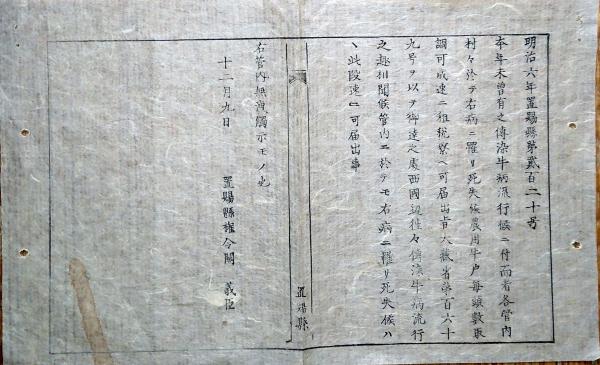 明治六年置賜縣第貳百二十号
本年未曾有之傳染牛病流行候ニ付而者各管內
村々於テ右病ニ罹リ死失候農用牛戸毎頭數取
調可成速ニ租税寮ヘ可届出旨大藏省第百六十
九号ヲ以テ御達之處西國辺往々傳染牛病流行
之趣相聞候管内ニ於テモ右病ニ罹リ死失候ハ
丶此段速ニ可届出事
置賜縣
右管内無洩觸示モノ也
十二月九日
置賜縣權令關 義臣